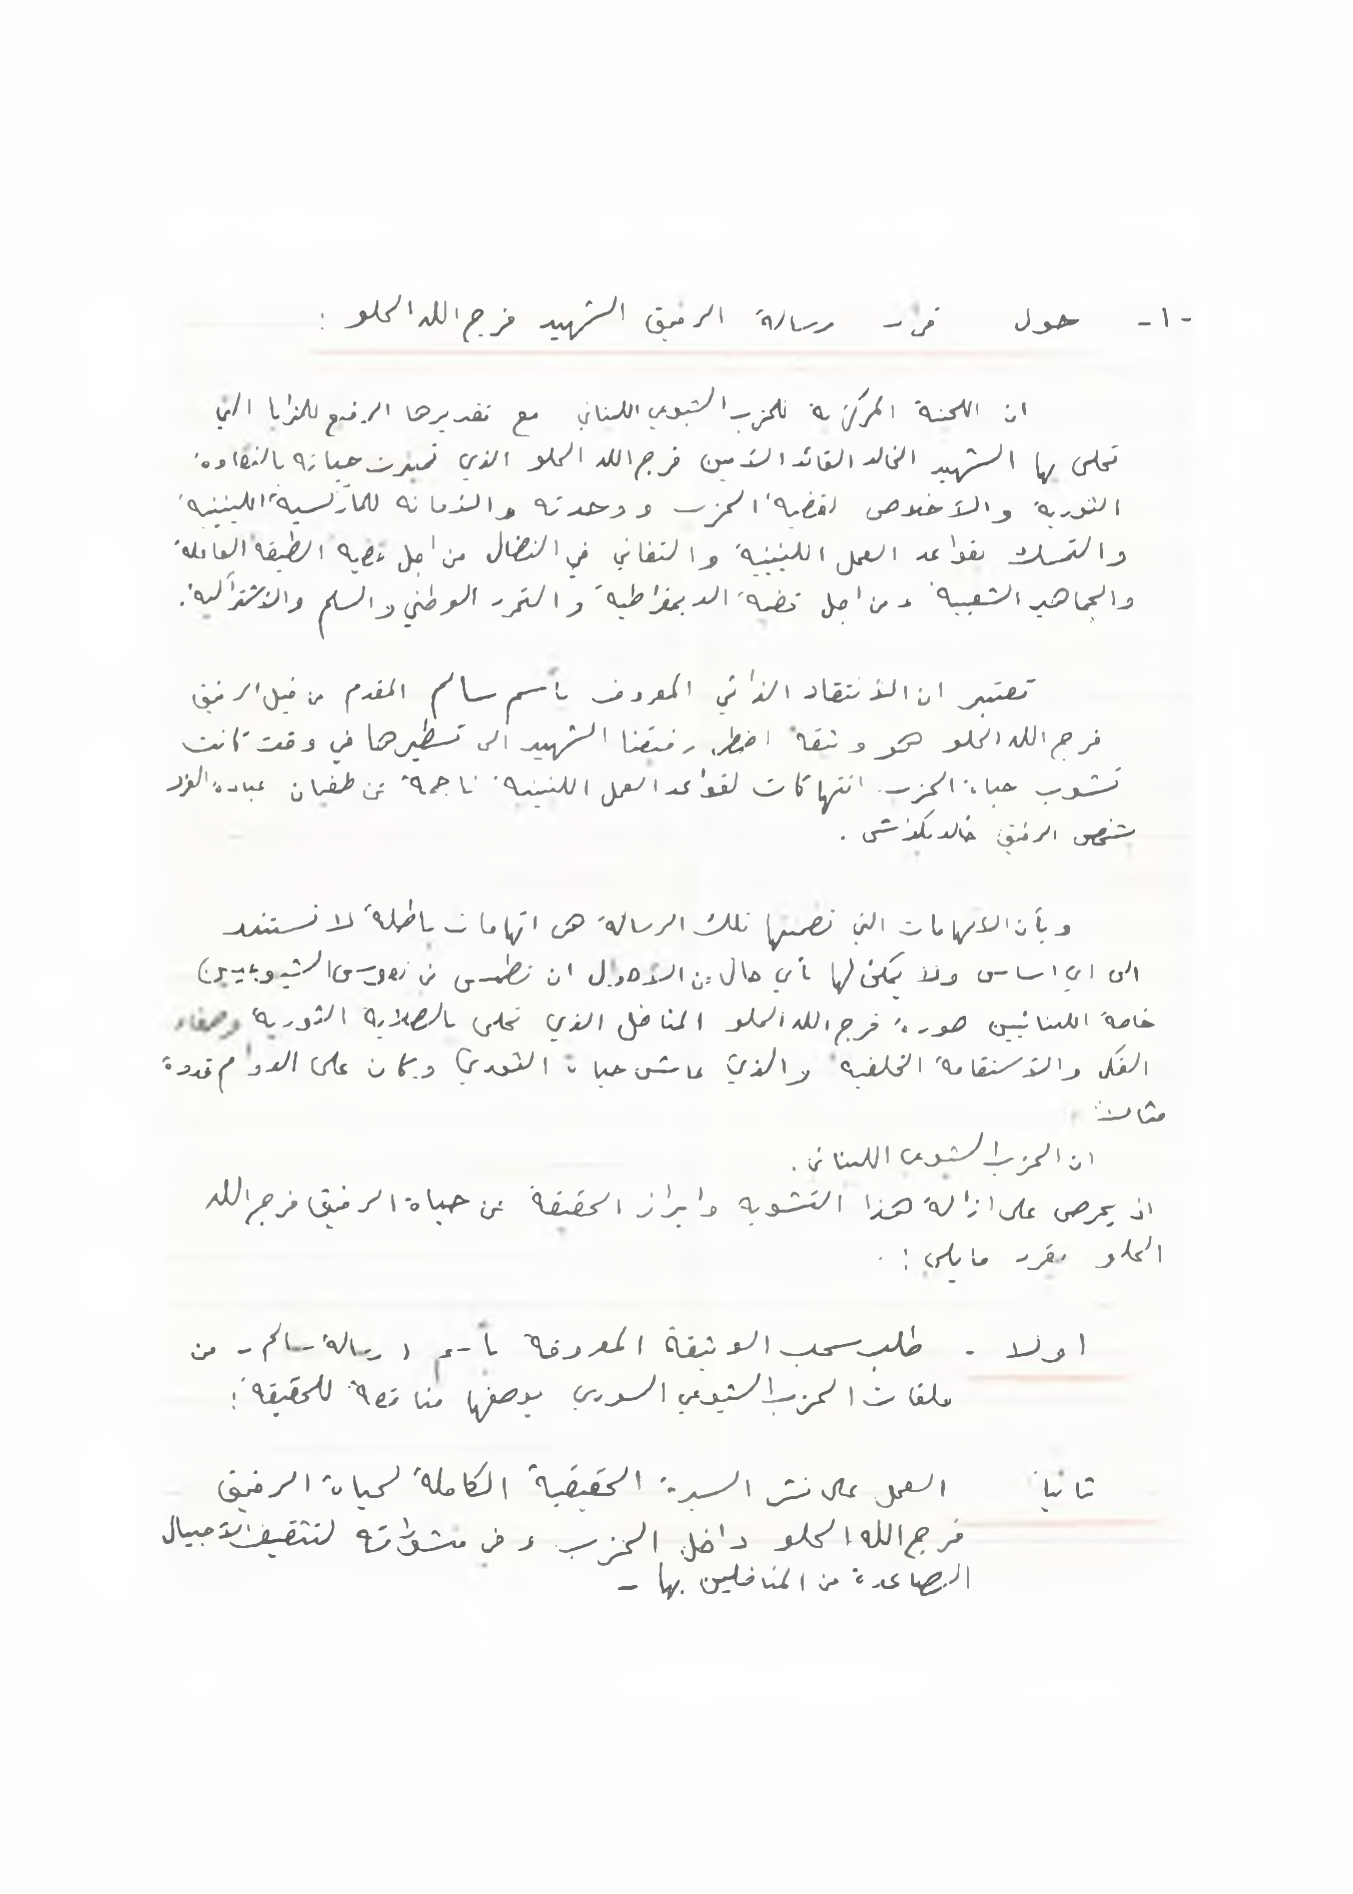 -١- حول قرار رسالة الرفيق الشهيد فرج الله الحلو :
ان اللجنة المركزية للحزب الشيوعي اللبناني مع تقديرها الرفيع للمزايا التي
تحلى بها الشهيد الخالد القائد الأمين فرج الله الحلو الذي تميزت حياته بالنقاوة
الثورية والأخلاص لقضية الحزب ووحدته والأمانة للماركسية اللينينية
والتمسك بقواعد العمل اللينينية والتفاني في النضال من اجل قضية الطبقة العاملة
والجماهير الشعبية ومن اجل قضية الديمقراطية والتحرر الوطني والسلم والأشتراكية.
تعتبر ان الأنتقاد الذاتي المعروف بأسم سالم المقدم من قبل الرفيق
فرج الله الحلو هو وثيقة اضطر رفيقنا الشهيد الى تسطيرها في وقت كانت
تشوب حياة الحزب انتهاكات لقواعد العمل اللينينية ناجمة عن طغيان عبادة الفرد
بشخص الرفيق خالد بكداش .
وبأن الاتهامات التي تضمنتها تلك الرسالة هي اتهامات باطلة لا تستند
الى اي اساس ولا يمكن لها بأي حال من الأحوال ان تطمس في نفوس الشيوعيين
خاصة اللبنانيين صورة فرج الله الحلو المناضل الذي تحلى بالصلابة الثورية وصفاء
الفكر والأستقامة الخلقية والذي عاش حياة الثوري وكان على الدوام قدوة
مثالا
ان الحزب الشيوعي اللبناني .
اذ يحرص على ازالة هذا التشويه وابراز الحقيقة عن حياة الرفيق فرج الله
الحلو يقرر ما يلي :
اولا - طلب سحب الوثيقة المعروفة بأسم رسالة سالم - من
ملفات الحزب الشيوعي السوري بوصفها مناقضة للحقيقة :
ثانيا العمل على نشر السيرة الحقيقية الكاملة لحياة الرفيق
فرج الله الحلو داخل الحزب وفي منشوراته لتثقيف الأجيال
الصاعدة من المناضلين بها -